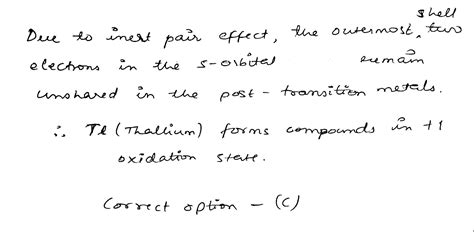 Due to inert pair effect, the outermost shell two
electrons in the s-orbital remain
unshared in the post-transition metals.
∴ Tl (Thallium) forms compounds in +1
oxidation state.
Correct option - (C)